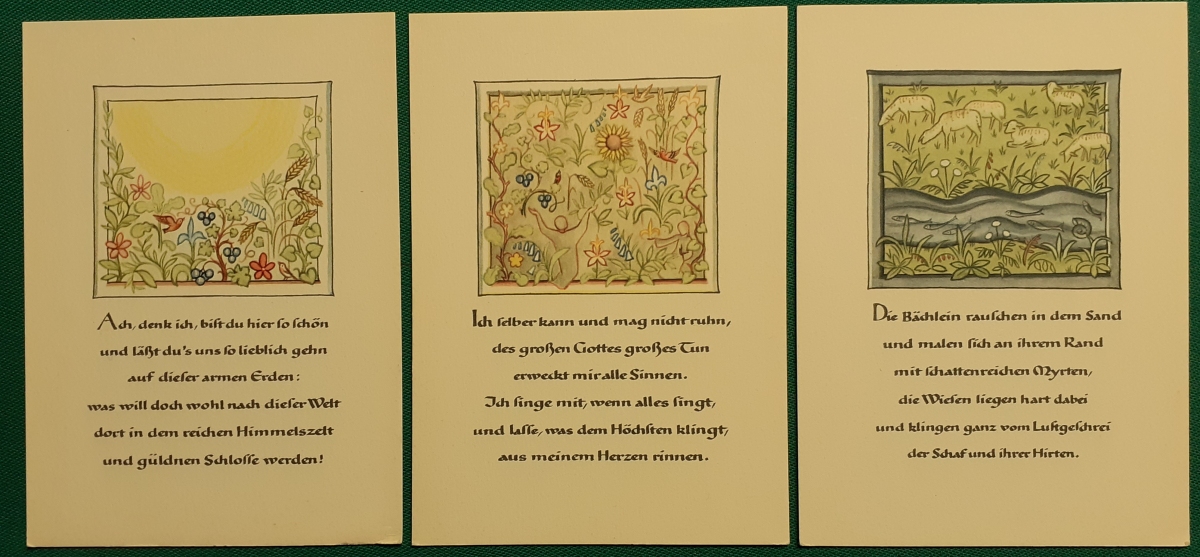 Ach, denk ich, bist du hier so schön
und läßt du's uns so lieblich gehn
auf dieser armen Erden:
was will doch wohl nach dieser Welt
dort in dem reichen Himmelszelt
und güldnen Schlosse werden!
Ich selber kann und mag nicht ruhn,
des großen Gottes großes Tun
erweckt mir alle Sinnen.
Ich singe mit, wenn alles singt,
und lasse, was dem Höchsten klingt,
aus meinem Herzen rinnen.
Die Bächlein rauschen in dem Sand
und malen sich an ihrem Rand
mit schattenreichen Myrten,
die Wiesen liegen hart dabei
und klingen ganz vom Lustgeschrei
der Schaf und ihrer Hirten.